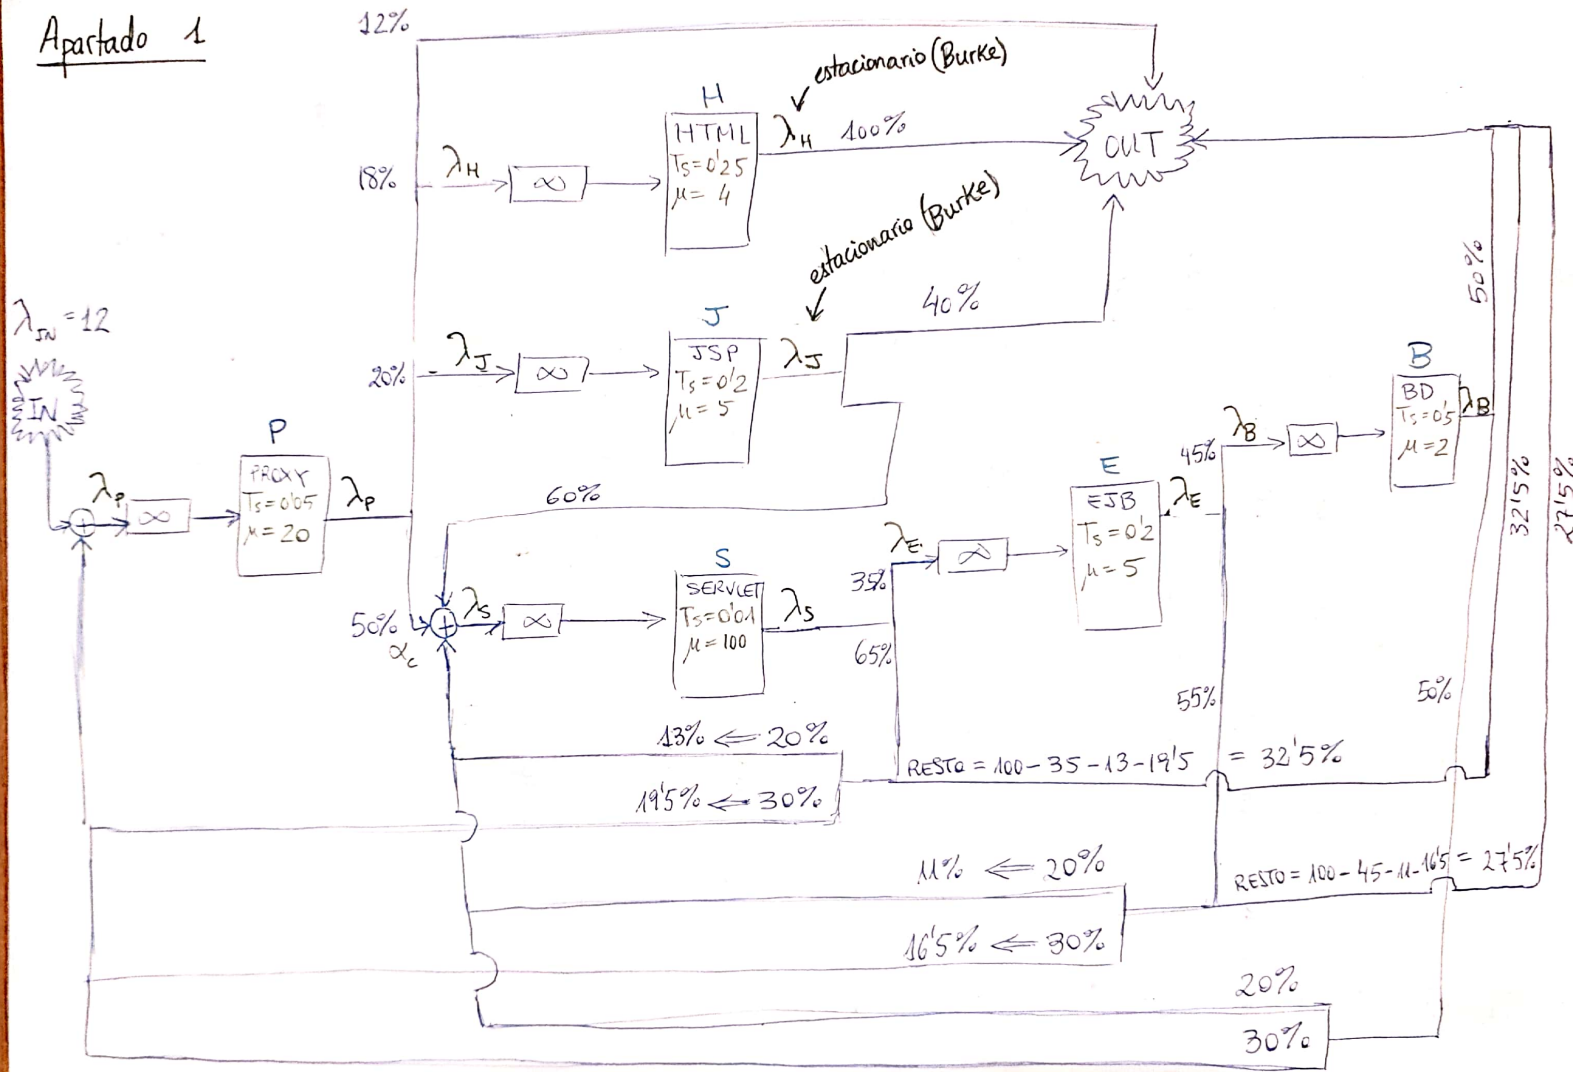 Apartado 1
12%
estacionario (Burke)
H
HTML
Ts=0'25
μ= 4
λH
100%
OUT
18%
λH
∞
estacionario (Burke)
50%
40%
λIN=12
IN
J
JSP
Ts=0'2
μ=5
λJ
20%
λJ
∞
B
BD
Ts=0'5
μ=2
λB
λB
45%
∞
32'5%
27'5%
P
PROXY
Ts=0'05
μ=20
λP
∞
λP
60%
E
EJB
Ts=0'2
μ=5
λE
λE
∞
35%
S
SERVLET
Ts=0'01
μ=100
λS
50%
αc
λS
∞
65%
55%
50%
13% ⇐ 20%
RESTO = 100-35-13-19'5 = 32'5%
19'5% ⇐ 30%
11% ⇐ 20%
RESTO = 100-45-11-16'5 = 27'5%
16'5% ⇐ 30%
20%
30%